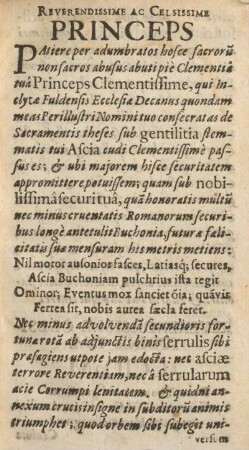 REVERENDISSIME AC CELSISSIME
PRINCEPS
PAtiere per adumbratos hosce sacrorũ
non sacros abusus abuti piè Clementiâ
tuâ Princeps Clementissime, qui In-
clytæ Fuldensis Ecclesiæ Decanus quondam
meas Perillustri Nomini tuo consecratas de
Sacramentis theses sub gentilitia stem-
matis tui Ascia cudi Clementissimè pas-
sus es; & ubi majorem hisce securitatem
appromittere potuissem; quam sub nobi-
lissimâ securi tuâ, quâ honoratis multũ
nec minus cruentatis Romanorum securi-
bus longè antetulit Buchonia, futuræ fæli-
citatis suæ mensuram his metris metiens:
Nil moror ausonios fasces, Latiasq; secures,
Ascia Buchoniam pulchrius ista tegit
Ominor; Eventus mox sanciet oĩa; quãvis
Ferrea sit, nobis aurea sæcla feret.
Nec minus advolvendâ secundioris for-
tunæ rotâ ab adjunctis binis serrulis sibi
præsagiens utpote jam edocta: nec asciæ
terrore Reverentiam, nec â serrularum
acie Corrumpi lenitatem. & quidni an-
nexum crutis insigne in subditorũ animis
triumphet; quod orbem sibi subegit uni-
versum